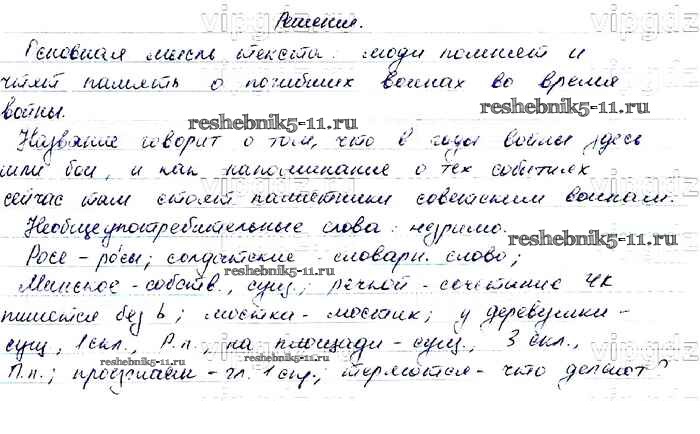 Решения.
Основная мысль текста: люди помнят и
чтят память о погибших воинах во время
войны.
Название говорит о том, что в годы войны здесь
шли бои, и как напоминание о тех событиях
сейчас там стоят памятники советским воинам.
Необщеупотребительные слова: незримо.
Росе - росы; солдатские - словарн. слово;
Минское - собств., сущ.; речной - сочетание чк
пишется без ь; мостки - мостик; у деревушки -
сущ, 1 скл., Р.п.; на площади - сущ., 3 скл.,
П.п.; проезжаем - гл. 1 спр.; теряются - что делают?
reshebnik5-11.ru
reshebnik5-11.ru
reshebnik5-11.ru
reshebnik5-11.ru
reshebnik5-11.ru
vipgdz